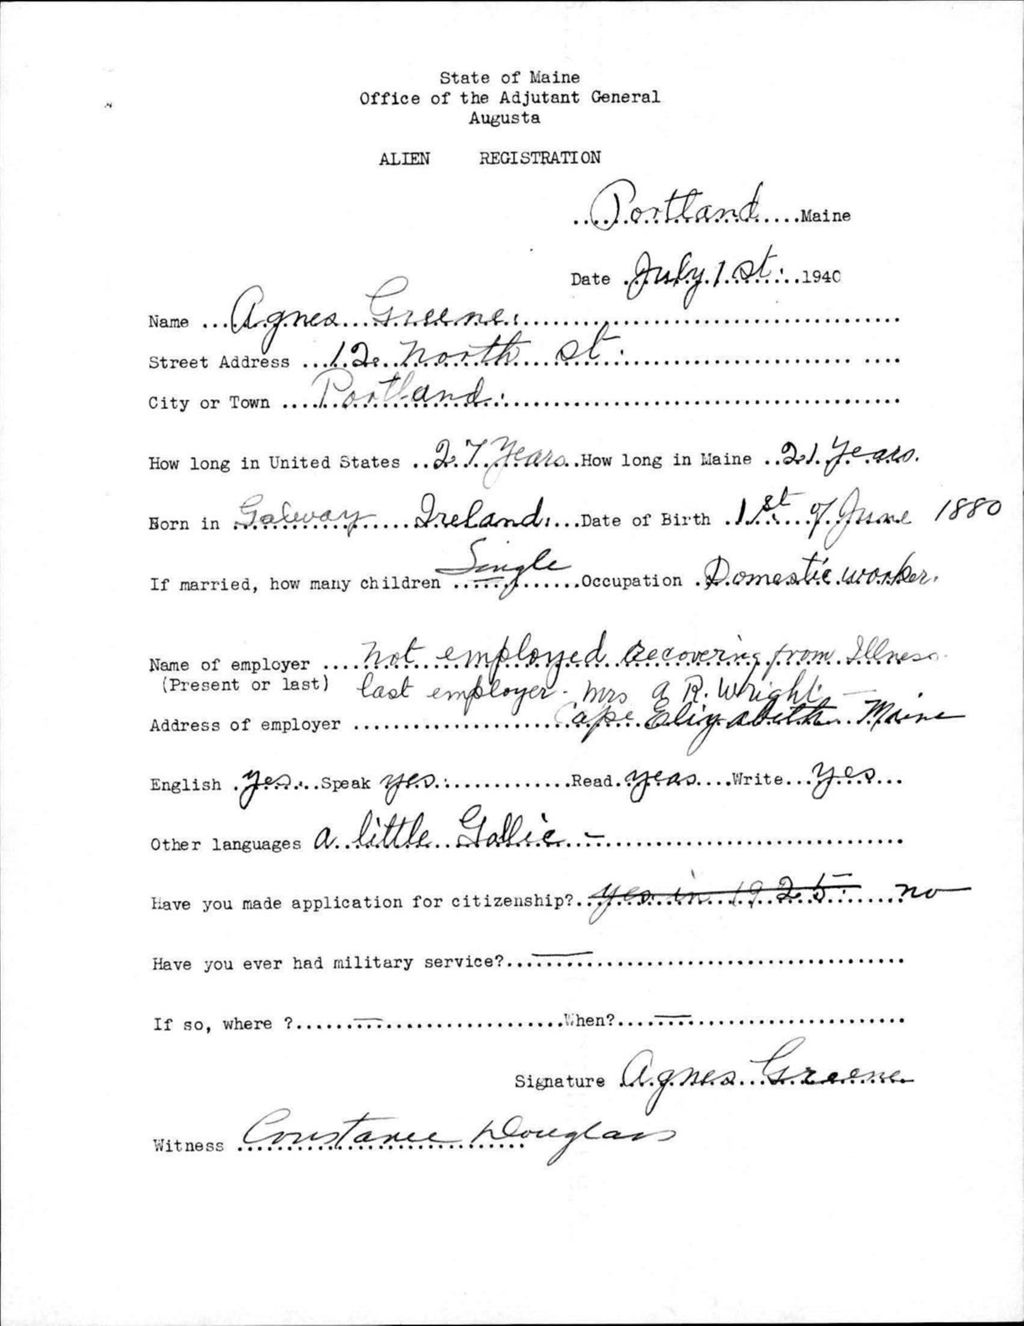 State of Maine
Office of the Adjutant General
Augusta
ALIEN REGISTRATION
Portland Maine
Date July 1 st. 1940
Name Agnes Greene.
Street Address 12 North st.
City or Town Portland.
How long in United States 27 Years. How long in Maine 21 Years.
Born in Galway Ireland. Date of Birth 1st of June 1880
If married, how many children Single Occupation Domestic worker.
Name of employer Not employed Recovering from Illness.
(Present or last) last employer - Mrs A R. Wright. —
Address of employer Cape Elizabeth Maine
English yes. Speak yes. Read yeas Write Yes
Other languages a little Gallic —
Have you made application for citizenship? yes in 1925 no
Have you ever had military service? —
If so, where ? — When? —
Signature Agnes Greene
Witness Constance Douglass